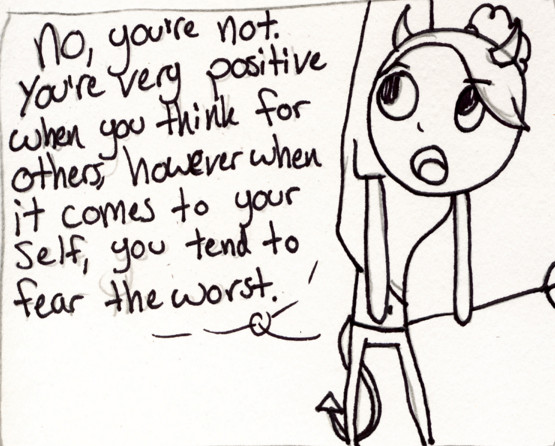 No, you're not.
You're very positive
when you think for
others, however when
it comes to your
self, you tend to
fear the worst.